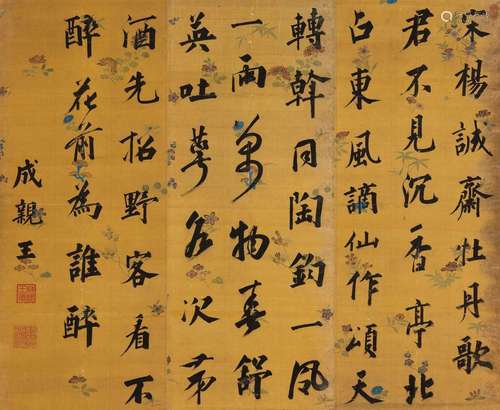 宋楊誠齋牡丹歌
君不見沉香亭北
占東風謫仙作頌天
轉斡同陶鈞一風
一雨萬物春舒
英吐萼各次第
酒先招野客看不
醉花前為誰醉
成親王